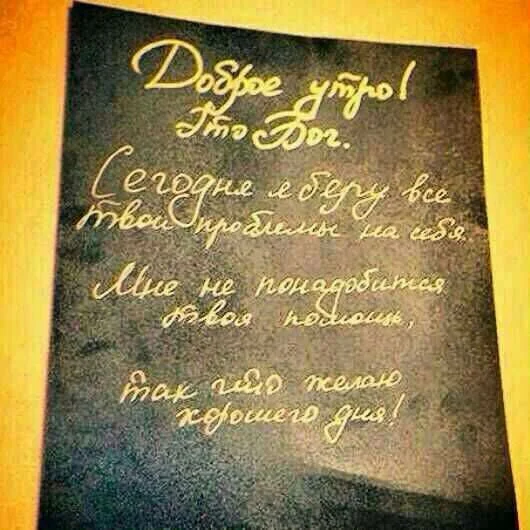 Доброе утро!
Это Бог.
Сегодня я беру все
твои проблемы на себя.
Мне не понадобится
твоя помощь,
так что желаю
хорошего дня!